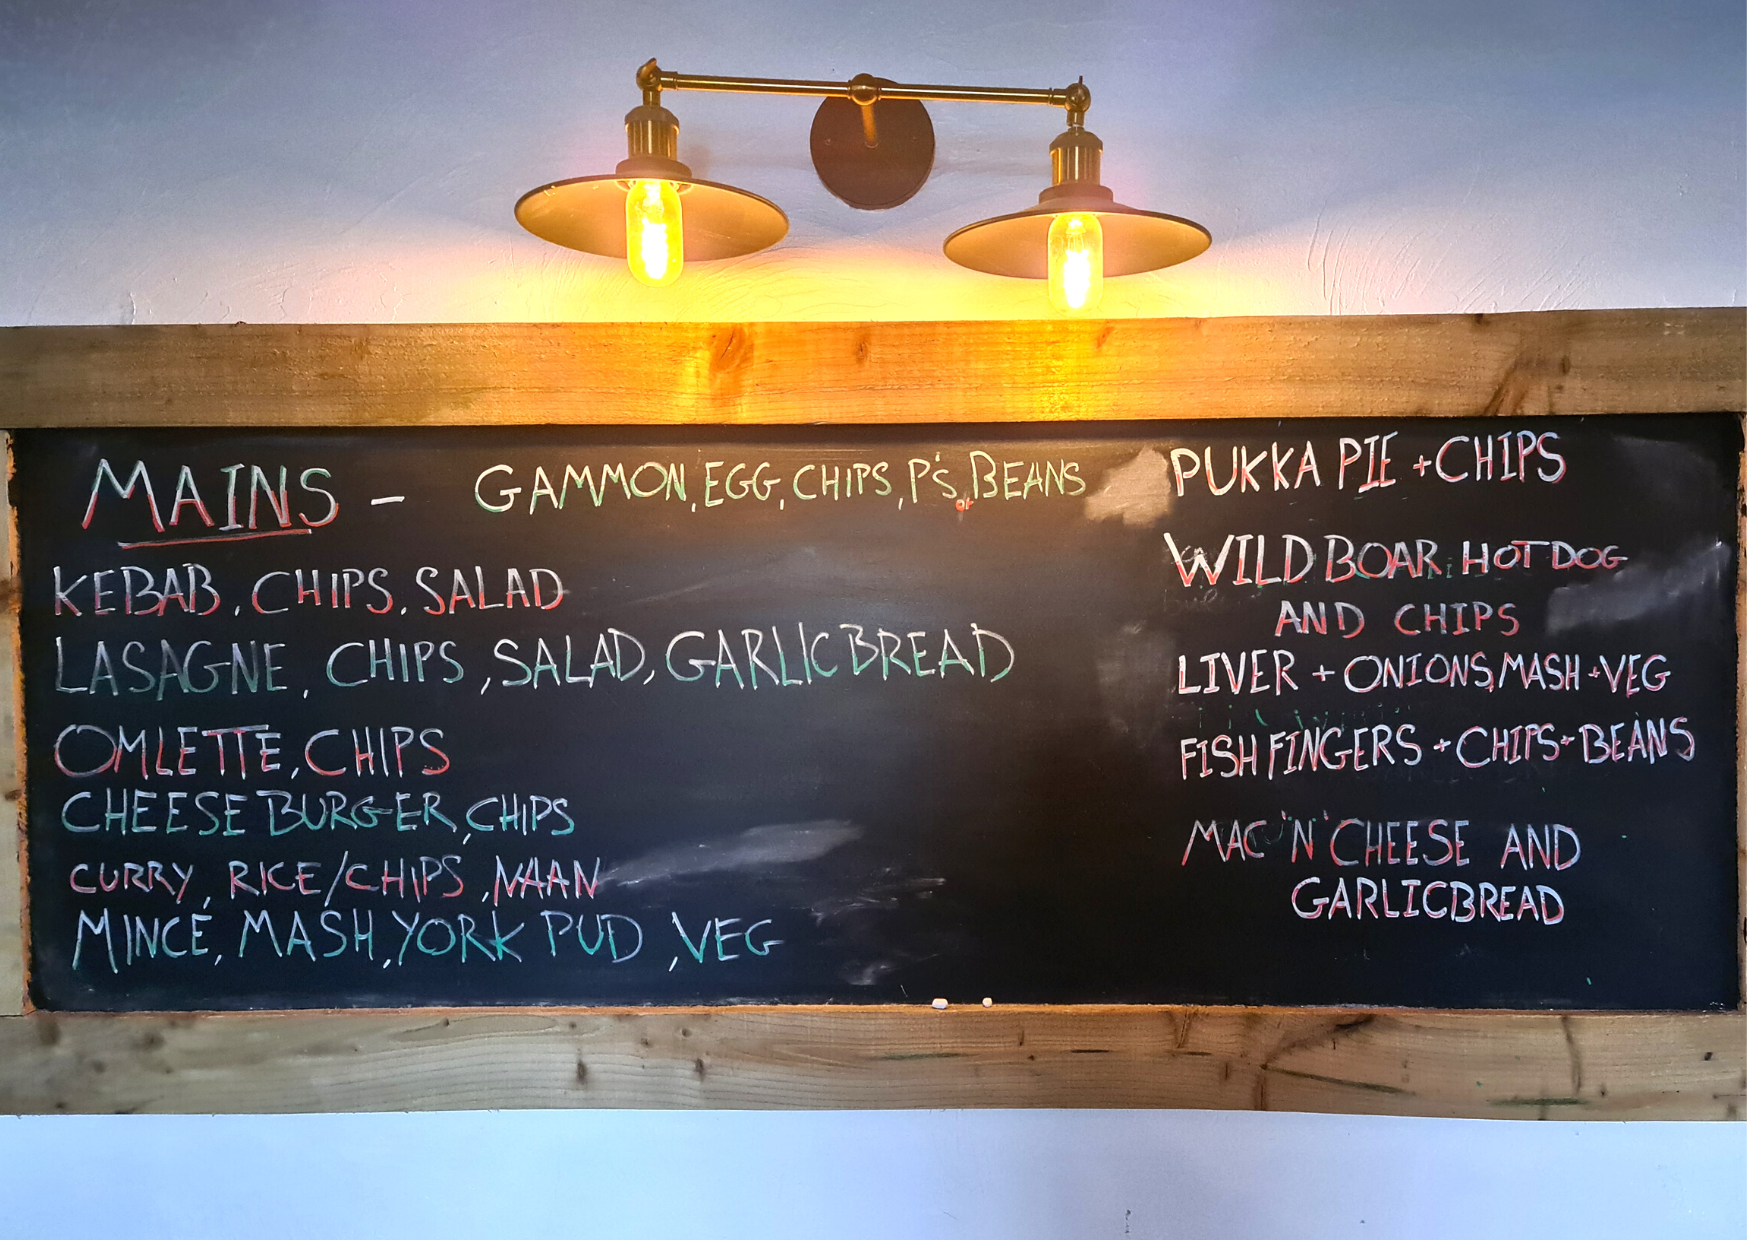 MAINS - GAMMON, EGG, CHIPS, P's, or BEANS
KEBAB, CHIPS, SALAD
LASAGNE, CHIPS, SALAD, GARLIC BREAD
OMLETTE, CHIPS
CHEESE BURGER, CHIPS
CURRY, RICE/CHIPS, NAAN
MINCE, MASH, YORK PUD, VEG
PUKKA PIE + CHIPS
WILD BOAR HOT DOG
AND CHIPS
LIVER + ONIONS, MASH + VEG
FISH FINGERS + CHIPS + BEANS
MAC 'N' CHEESE AND
GARLICBREAD